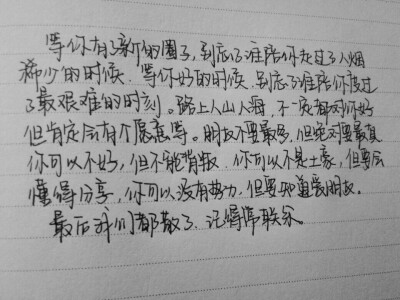 等你有了新的圈子,别忘了谁陪你走过了人烟
稀少的时候.等你好的时候,别忘了谁陪你度过
了最艰难的时刻。路上人山人海,不一定都对你好
但肯定会有个愿意等。朋友不要最多,但绝对要最真
你可以不好,但不能背叛.你可以不是土豪,但要会
懂得分享,你可以没有势力,但要知道爱朋友.
最后我们都散了、记得常联系。